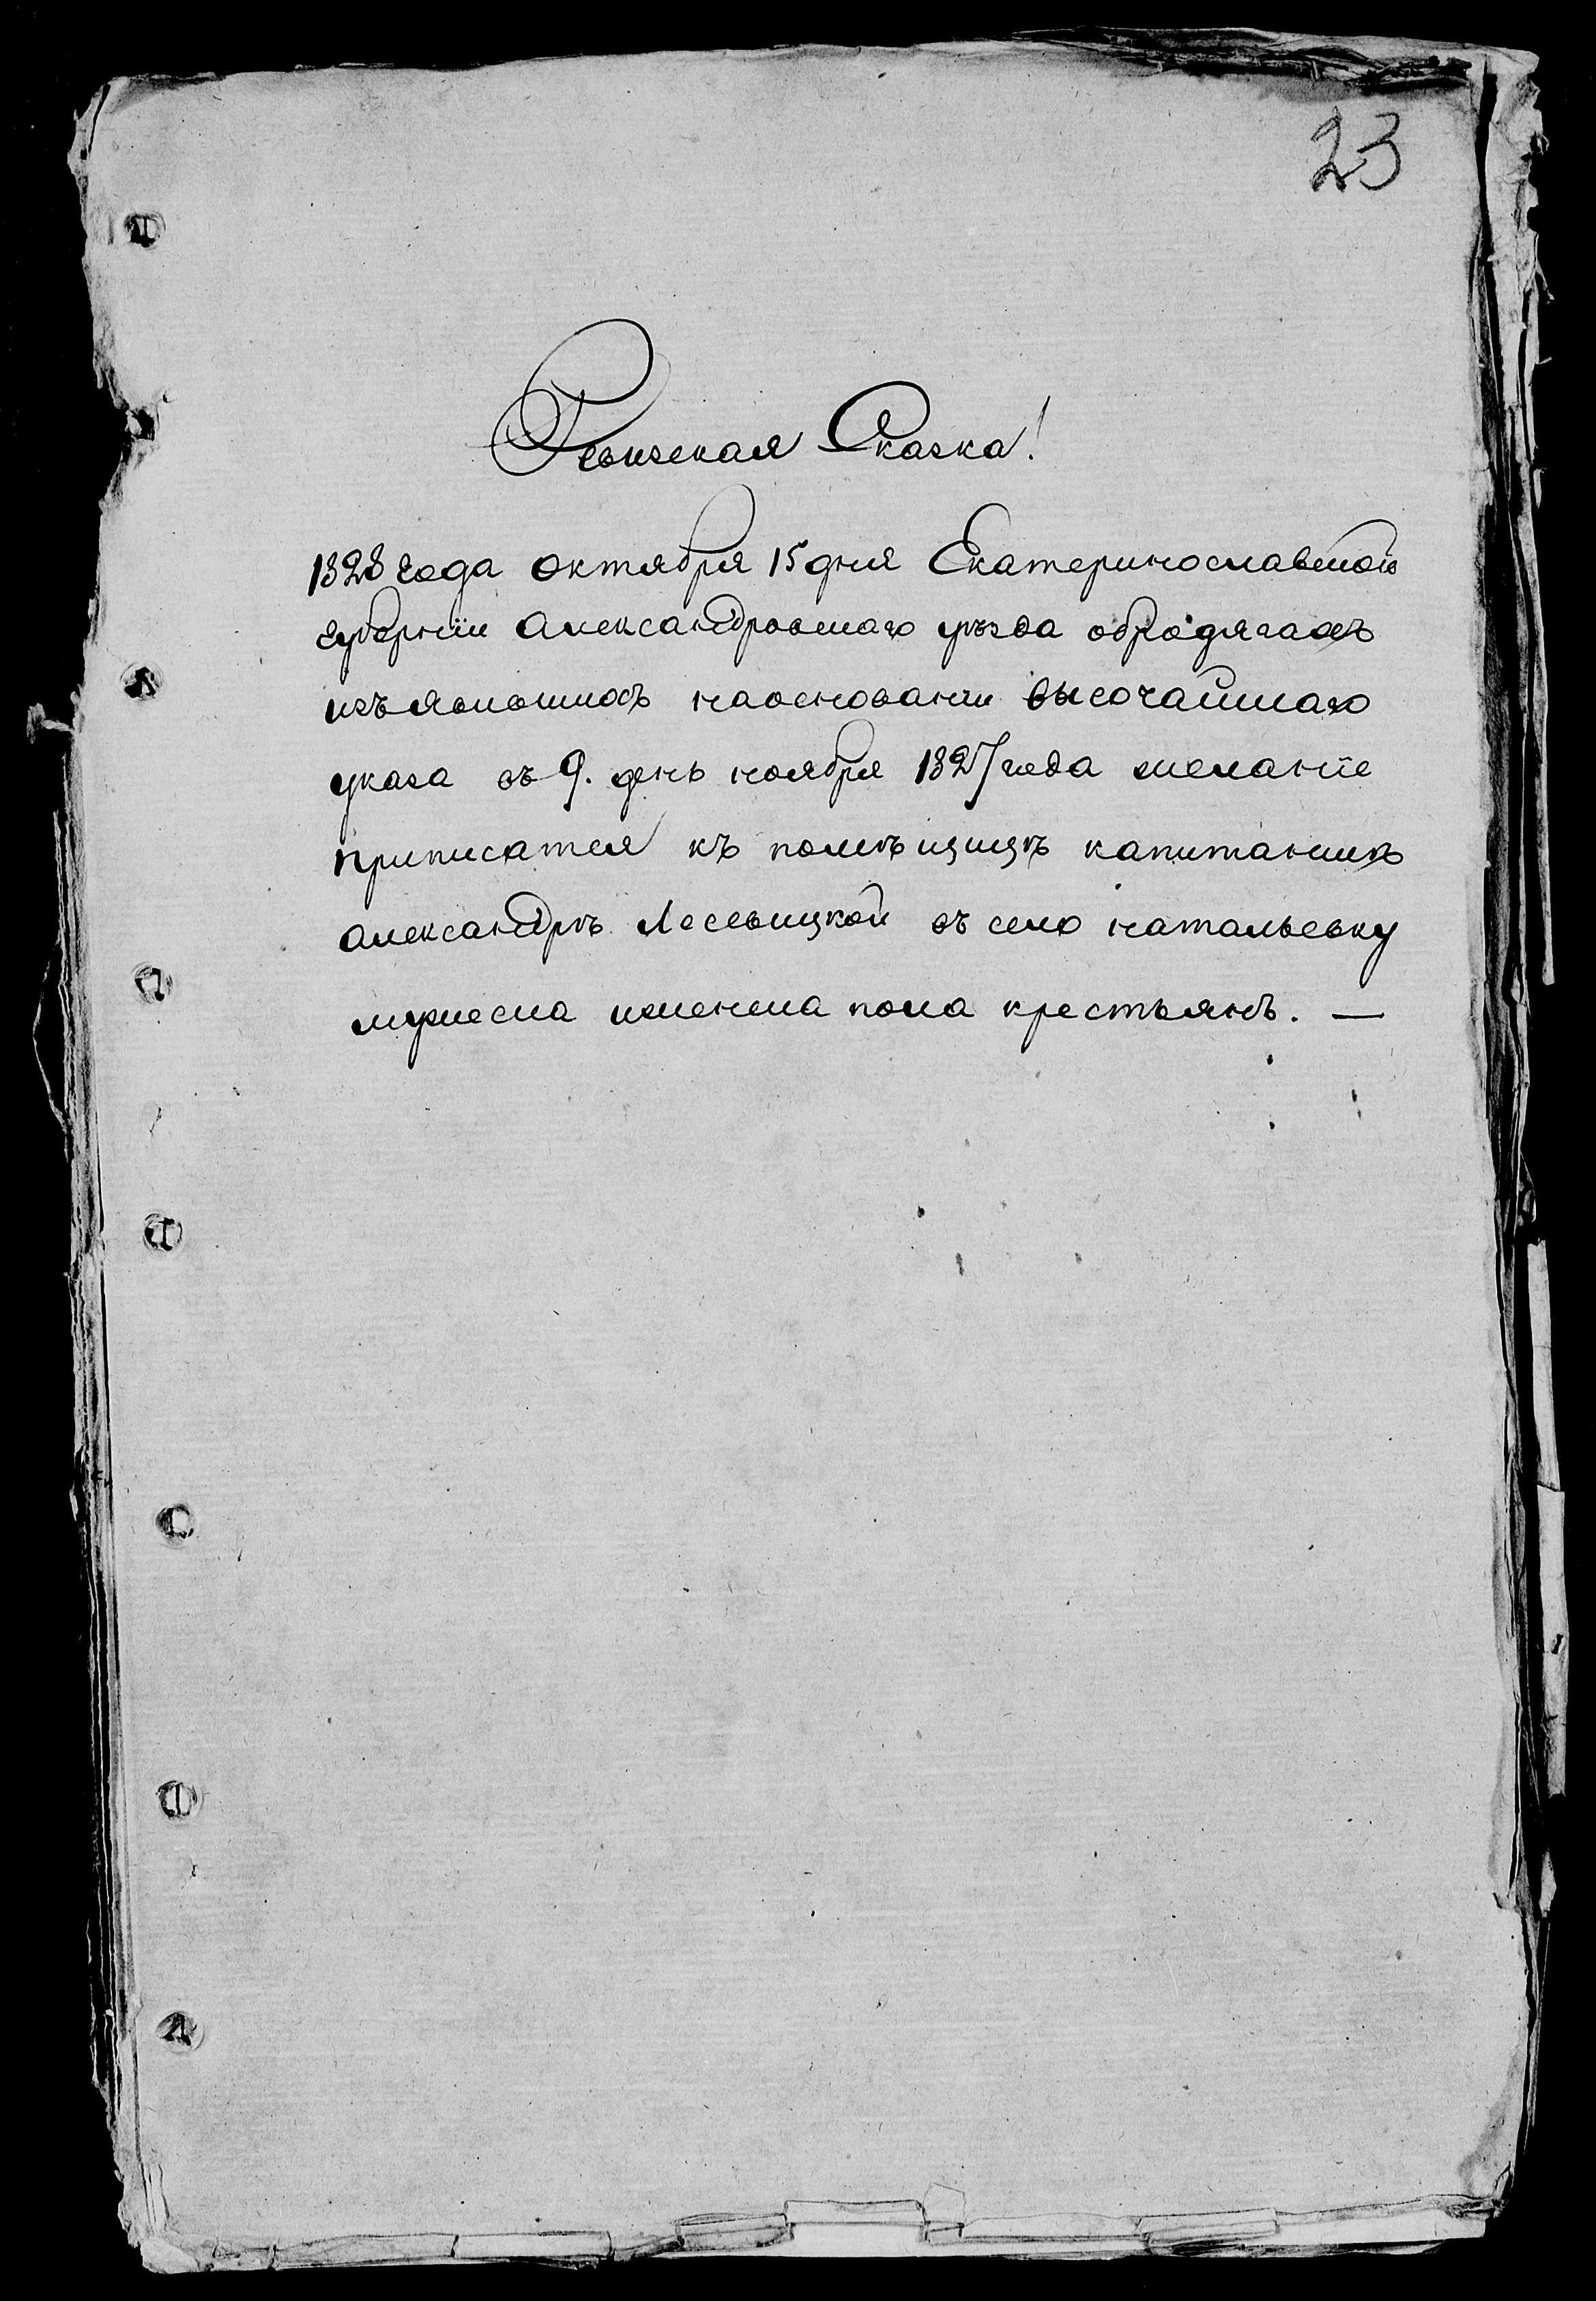 23
Ревизская Сказка!
1828 года октября 15 дня Екатеринославской
губернiи Александровскаго уѣзда обродягахъ
изъявившихъ наоснованiи высочайшаго
указа въ 9. день ноября 1827 года желанiе
приписатся къ помѣщицѣ капитаншѣ
александрѣ Лесевицкой въ село натальевку
мужеска иженска пола крестьянъ. —